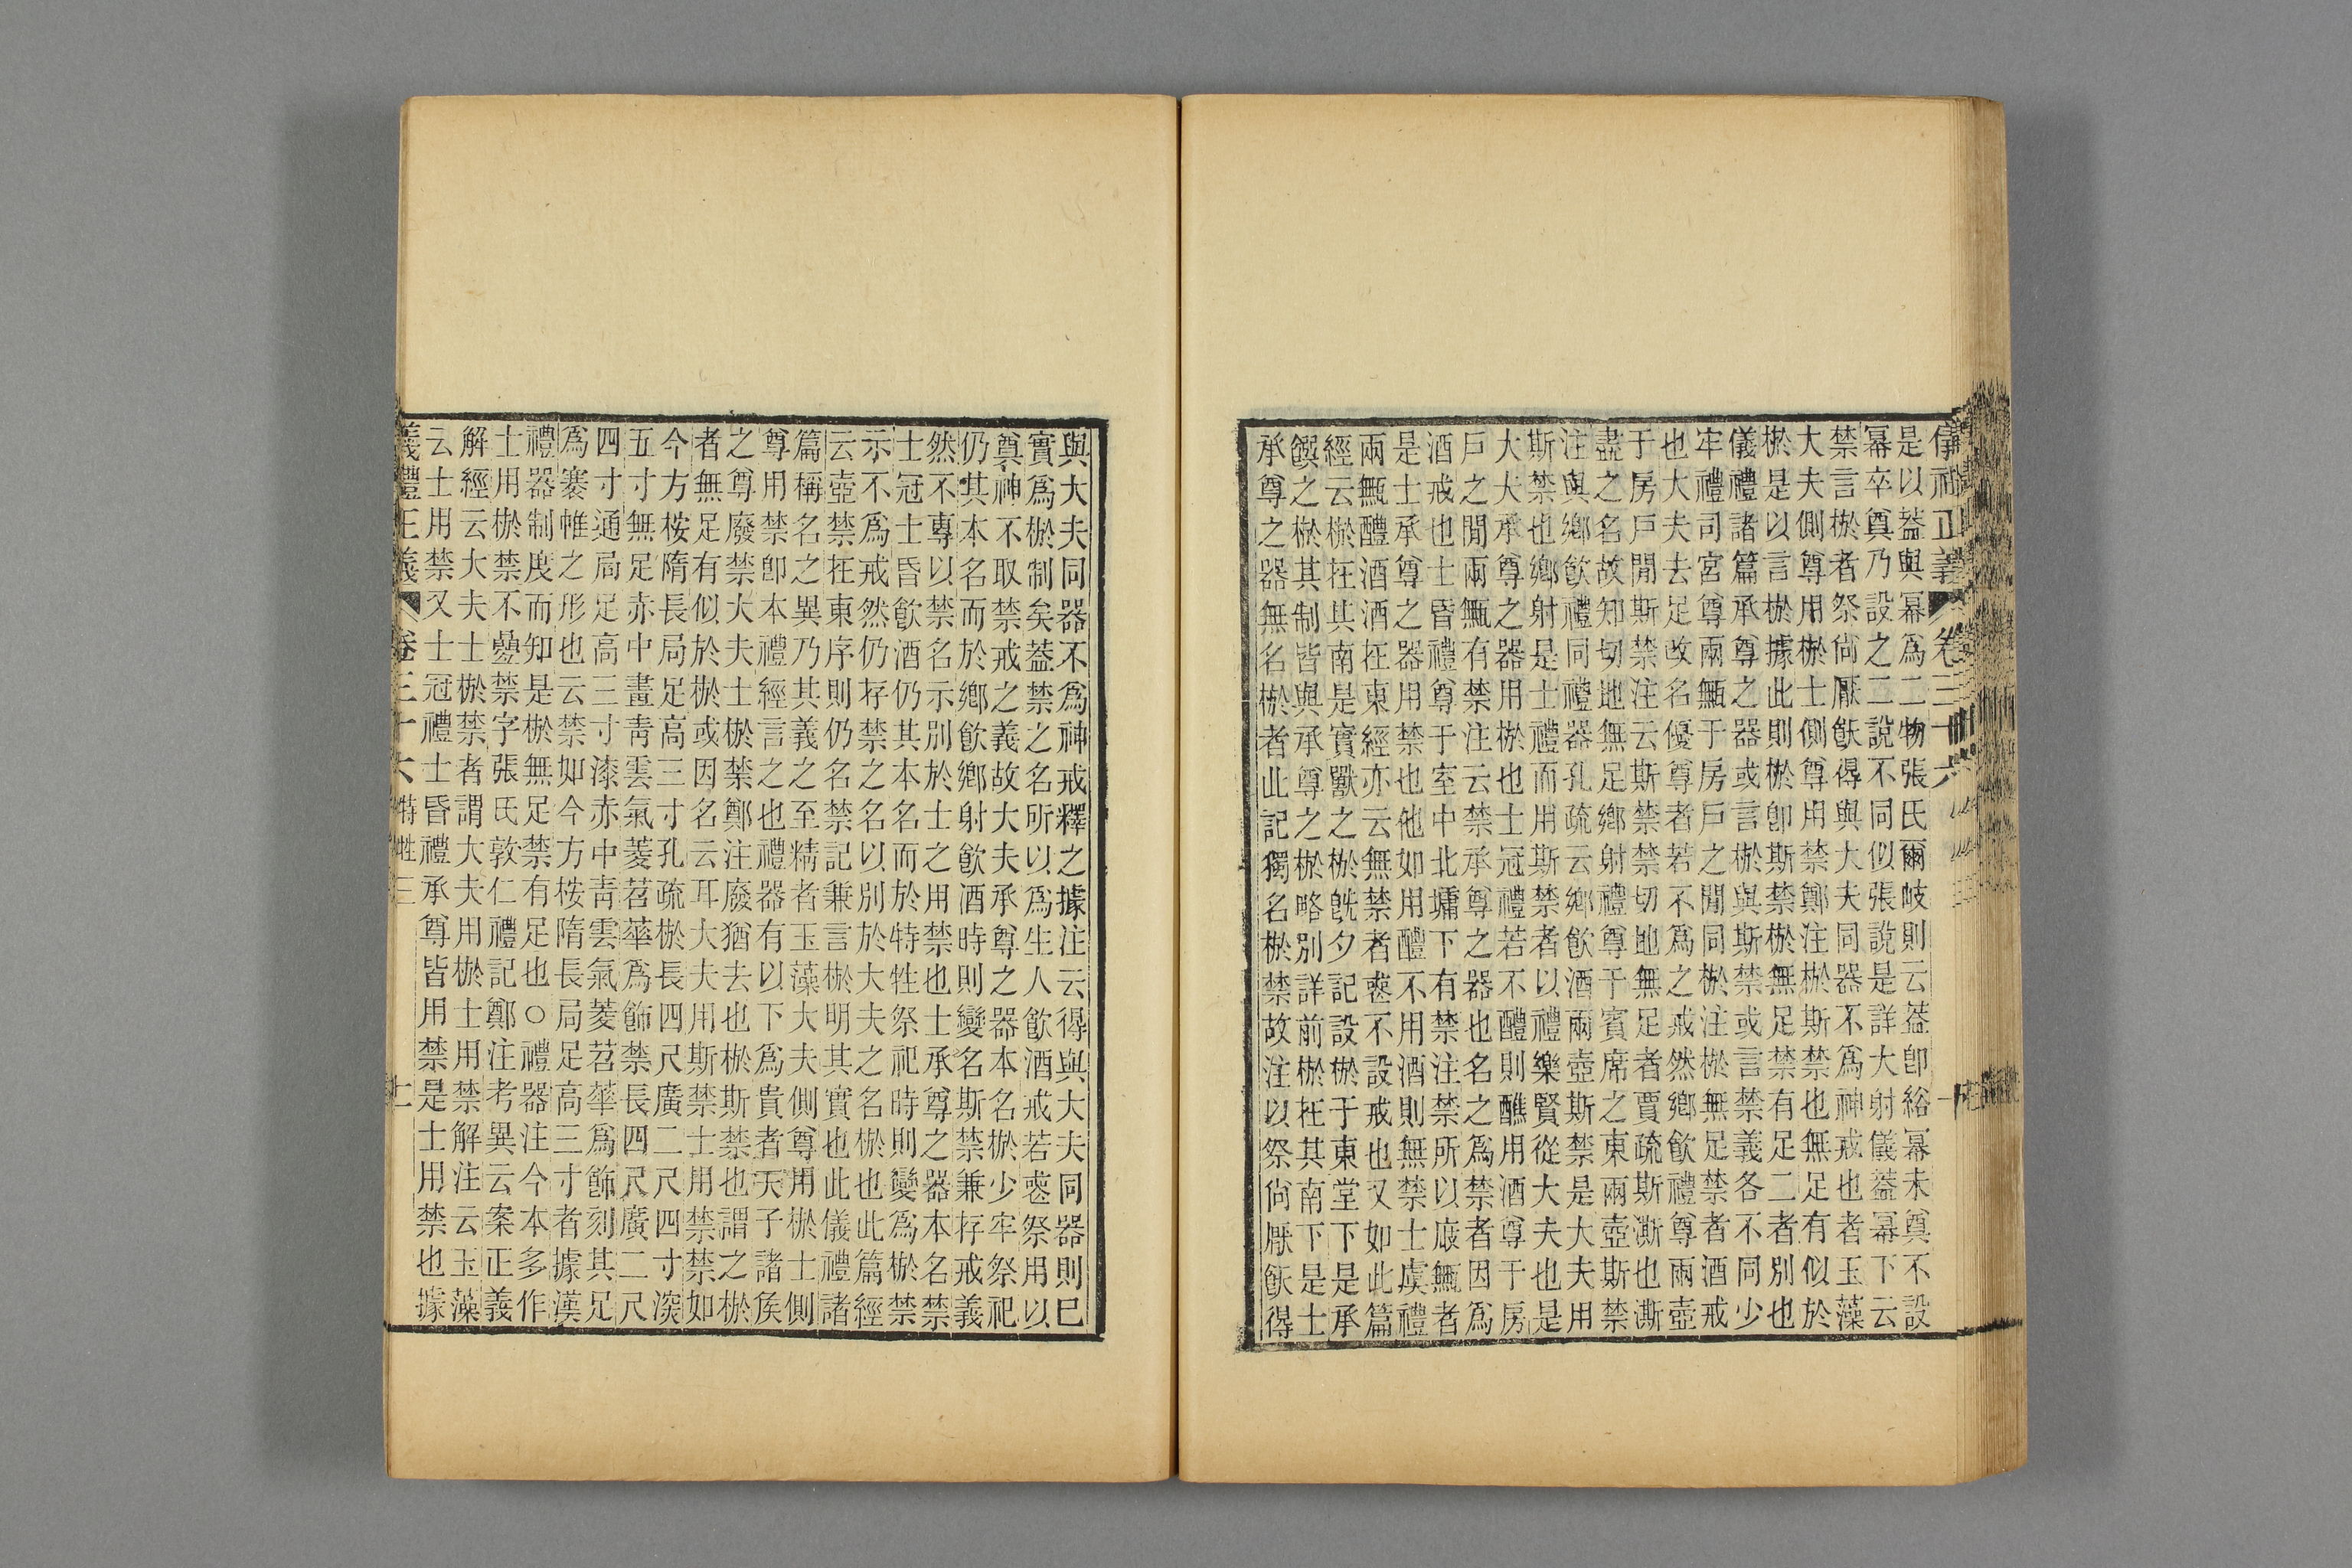 儀禮正義 卷三十六
是以蓋與冪爲二物張氏爾岐則云蓋卽綌冪未奠不設
冪卒奠乃設之二說不同似張說是詳大射儀蓋冪下云
禁言棜者祭尙厭飫得與大夫同器不爲神戒也者玉藻
大夫側尊用棜士側尊用禁鄭注棜斯禁也無足有似於
棜是以言棜據此則棜卽斯禁棜無足禁有足二者別也
儀禮諸篇承尊之器或言棜與斯禁或言禁義各不同少
牢禮司宮尊兩甒于房戶之閒同棜注棜無足禁者酒戒
也大夫去足改名優尊者若不爲之戒然鄉飮禮尊兩壺
于房戶閒斯禁注云斯禁禁切地無足者賈疏斯澌也澌
盡之名故知切地無足鄉射禮尊于賓席之東兩壺斯禁
注與鄉飮禮同禮器孔疏云鄉飮酒兩壺斯禁是大夫用
斯禁也鄉射是士禮而用斯禁者以禮樂賢從大夫也是
大夫承尊之器用棜也士冠禮若不醴則醮用酒尊于房
戶之閒兩甒有禁注云禁承尊之器也名之爲禁者因爲
酒戒也士昏禮尊于室中北墉下有禁注禁所以庪甒者
是士承尊之器用禁也他如用醴不用酒則無禁士虞禮
兩甒醴酒酒在東經亦云無禁者喪不設戒也又如此篇
經云棜在其南是實獸之棜旣夕記設棜于東堂下是承
饌之棜其制皆與承尊之棜略別詳前棜在其南下是士
承尊之器無名棜者此記獨名棜禁故注以祭尙厭飫得
與大夫同器不爲神戒釋之據注云得與大夫同器則已
實爲棜制矣蓋禁之名所以爲生人飮酒戒若喪祭用以
奠神不取禁戒之義故大夫承尊之器本名棜少牢祭祀
仍其本名而於鄉飮鄉射飮酒時則變名斯禁兼存戒義
然不專以禁名示別於士之用禁也士承尊之器本名禁
士冠士昏飮酒仍其本名而於特牲祭祀時則變爲棜禁
示不爲戒然仍存禁之名以別於大夫之名棜也此篇經
云壺禁在東序則仍名禁記兼言棜明其實也此儀禮諸
篇稱名之異乃其義之至精者玉藻大夫側尊用棜士側
尊用禁卽本禮經言之也禮器有以下爲貴者天子諸侯
之尊廢禁大夫士棜禁鄭注廢猶去也棜斯禁也謂之棜
者無足有似於棜或因名云耳大夫用斯禁士用禁禁如
今方桉隋長局足高三寸孔疏棜長四尺廣二尺四寸深
五寸無足赤中畫靑雲氣菱苕華爲飾禁長四尺廣二尺
四寸通局足高三寸漆赤中靑雲氣菱苕華爲飾刻其足
爲褰帷之形也云禁如今方桉隋長局足高三寸者據漢
禮器制度而知是棜無足禁有足也○禮器注今本多作
士用棜禁不疊禁字張氏敦仁禮記鄭注考異云案正義
解經云大夫士棜禁者謂大夫用棜士用禁解注云玉藻
云士用禁又士冠禮士昏禮承尊皆用禁是士用禁也據
義禮正義 卷三十六 特牲三